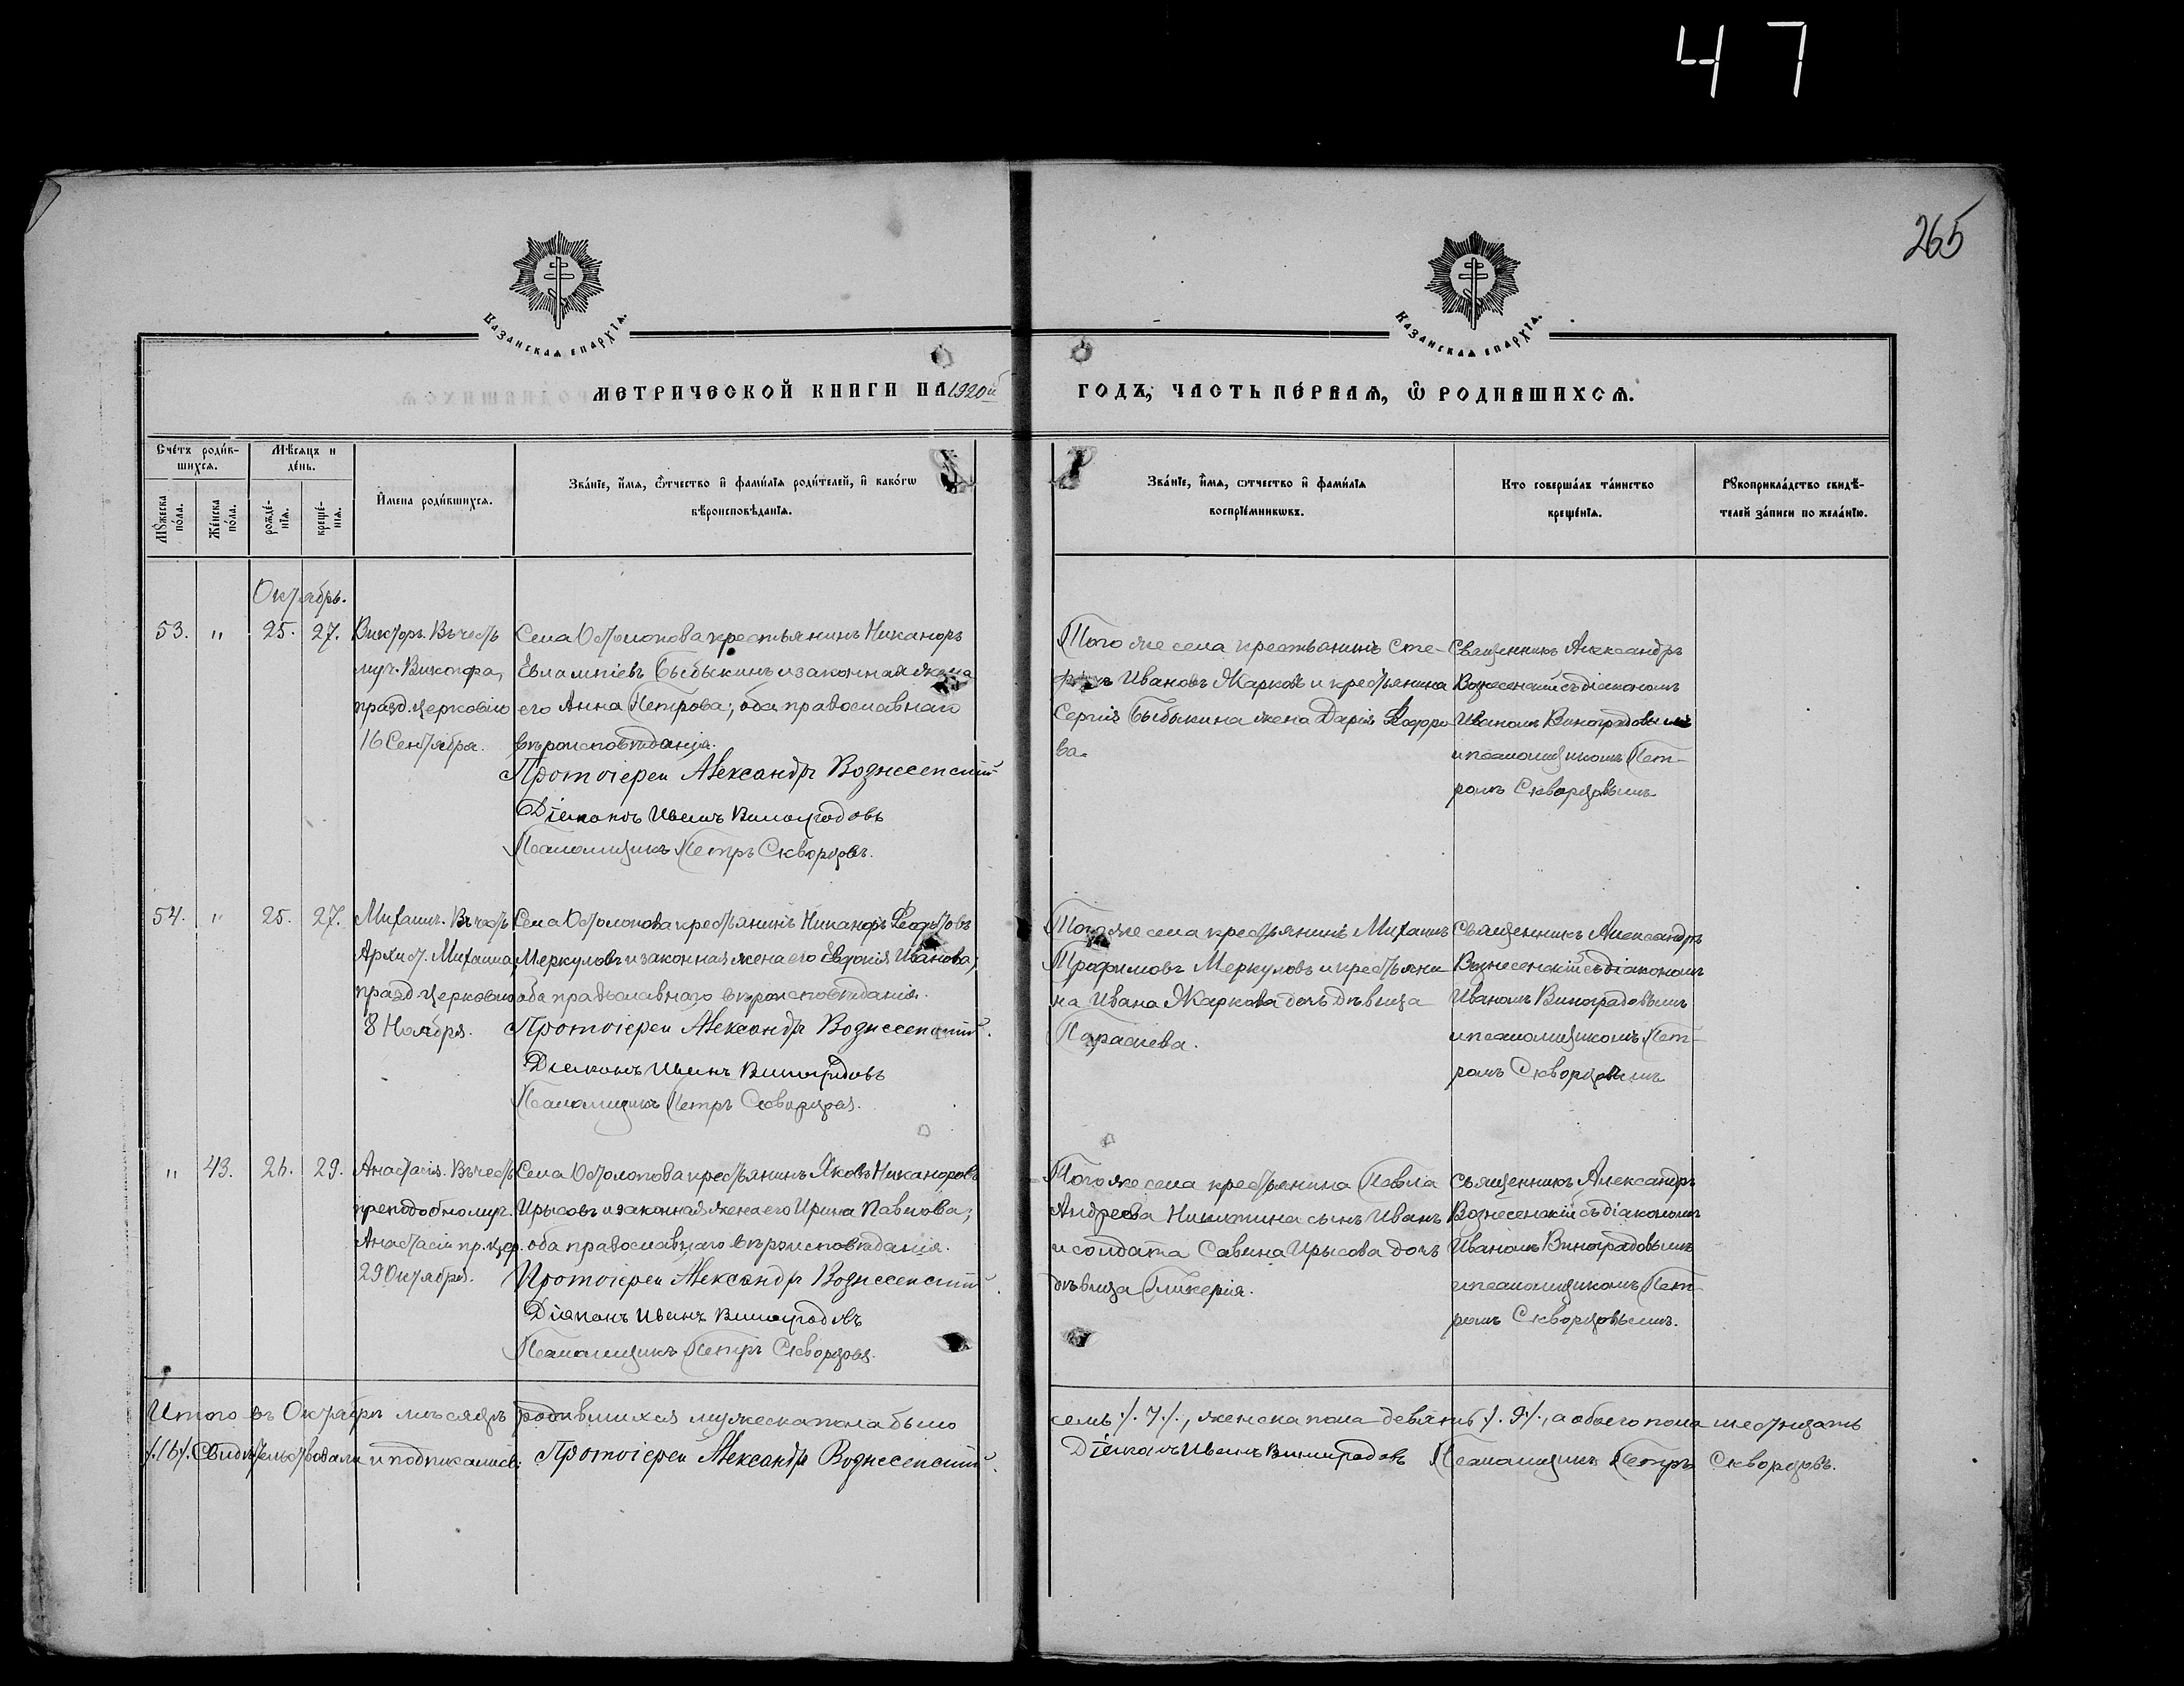 47
265
Казанская епархїа.
Казанская епархїа.
МЕТРИЧЕСКОЙ КНИГИ НА 1920й
ГОДЪ, ЧАСТЬ ПЕ́РВАѦ, Ѡ РОДИВШИХСѦ.
Сче́тъ роди́в-
шихся.
Мѣ́сяцъ и
де́нь.
Мꙋ́жеска
по́ла.
Же́нска
по́ла.
рожде́-
нїѧ.
креще́-
нїѧ.
И҆мена роди́вшихся.
Зва́нїе, и҆́мѧ, ѻ҆́тчество и҆ фами́лїѧ роди́телей, и҆ како́гѡ
вѣроисповѣ́данїѧ.
Зва́нїе, и҆́мѧ, ѻ҆тчество и҆ фами́лїѧ
воспрїе́мникѡвъ.
Кто соверша́лъ та́инство
креще́нїѧ.
Рꙋкоприкла́дство свидѣ́-
телей за́писи по жела́нїю.
Октябрь.
53. " 25. 27. Викторъ. Въ честь
муч. Виктора,
празд. церковію
16 Сентября.
Села Остолопова крестьянинъ Никаноръ
Евлампіевъ Быбыкинъ и законная жена
его Анна Петрова; оба православнаго
вѣроисповѣданія.
Протоіерей Александръ Вознесенскій
Діаконъ Иванъ Виноградовъ
Псаломщикъ Петръ Скворцовъ.
Того же села крестьянинъ Сте-
фанъ Ивановъ Жарковъ и крестьянина
Сергія Быбыкина жена Дарія Ѳедоро-
ва.
Священникъ Александръ
Вознесенскій съ діакономъ
Иваномъ Виноградовымъ
и псаломщикомъ Пет-
ромъ Скворцовымъ
54. " 25. 27. Михаилъ. Въ честь
Архист. Михаила,
празд. церковію
8 Ноября.
Села Остолопова крестьянинъ Никаноръ Ѳеодотовъ
Меркуловъ и законная жена его Евдокія Иванова,
оба православнаго вѣроисповѣданія.
Протоіерей Александръ Вознесенскій.
Діаконъ Иванъ Виноградовъ
Псаломщикъ Петръ Скворцовъ.
Того же села крестьянинъ Михаилъ
Трофимовъ Меркуловъ и крестьяни-
на Ивана Жаркова дочь дѣвица
Параскева.
Священникъ Александръ
Вознесенскій съ діакономъ
Иваномъ Виноградовымъ
и псаломщикомъ Пет-
ромъ Скворцовымъ
" 43. 26. 29. Анастасія. Въ честь
преподобномуч.
Анастасіи пр. цер.
29 Октября.
Села Остолопова крестьянинъ Яковъ Никаноровъ
Ирысовъ и законная жена его Ирина Павлова;
оба православнаго вѣроисповѣданія.
Протоіерей Александръ Вознесенскій.
Діаконъ Иванъ Виноградовъ
Псаломщикъ Петръ Скворцовъ.
Того же села крестьянина Павла
Андреева Никитина сынъ Иванъ
и солдата Савина Ирысова дочь
дѣвица Гликерія.
Священникъ Александръ
Вознесенскій съ діакономъ
Иваномъ Виноградовымъ
и псаломщикомъ Пет-
ромъ Скворцовымъ.
Итого въ Октябрѣ мѣсяцѣ родившихся мужеска пола было семь ./. 7 ./., женска пола девять ./. 9 ./., а обоего пола шестнадцать
./. 16 ./. Свидѣтельствовали и подписались: Протоіерей Александръ Вознесенскій. Діаконъ Иванъ Виноградовъ Псаломщикъ Петръ Скворцовъ.